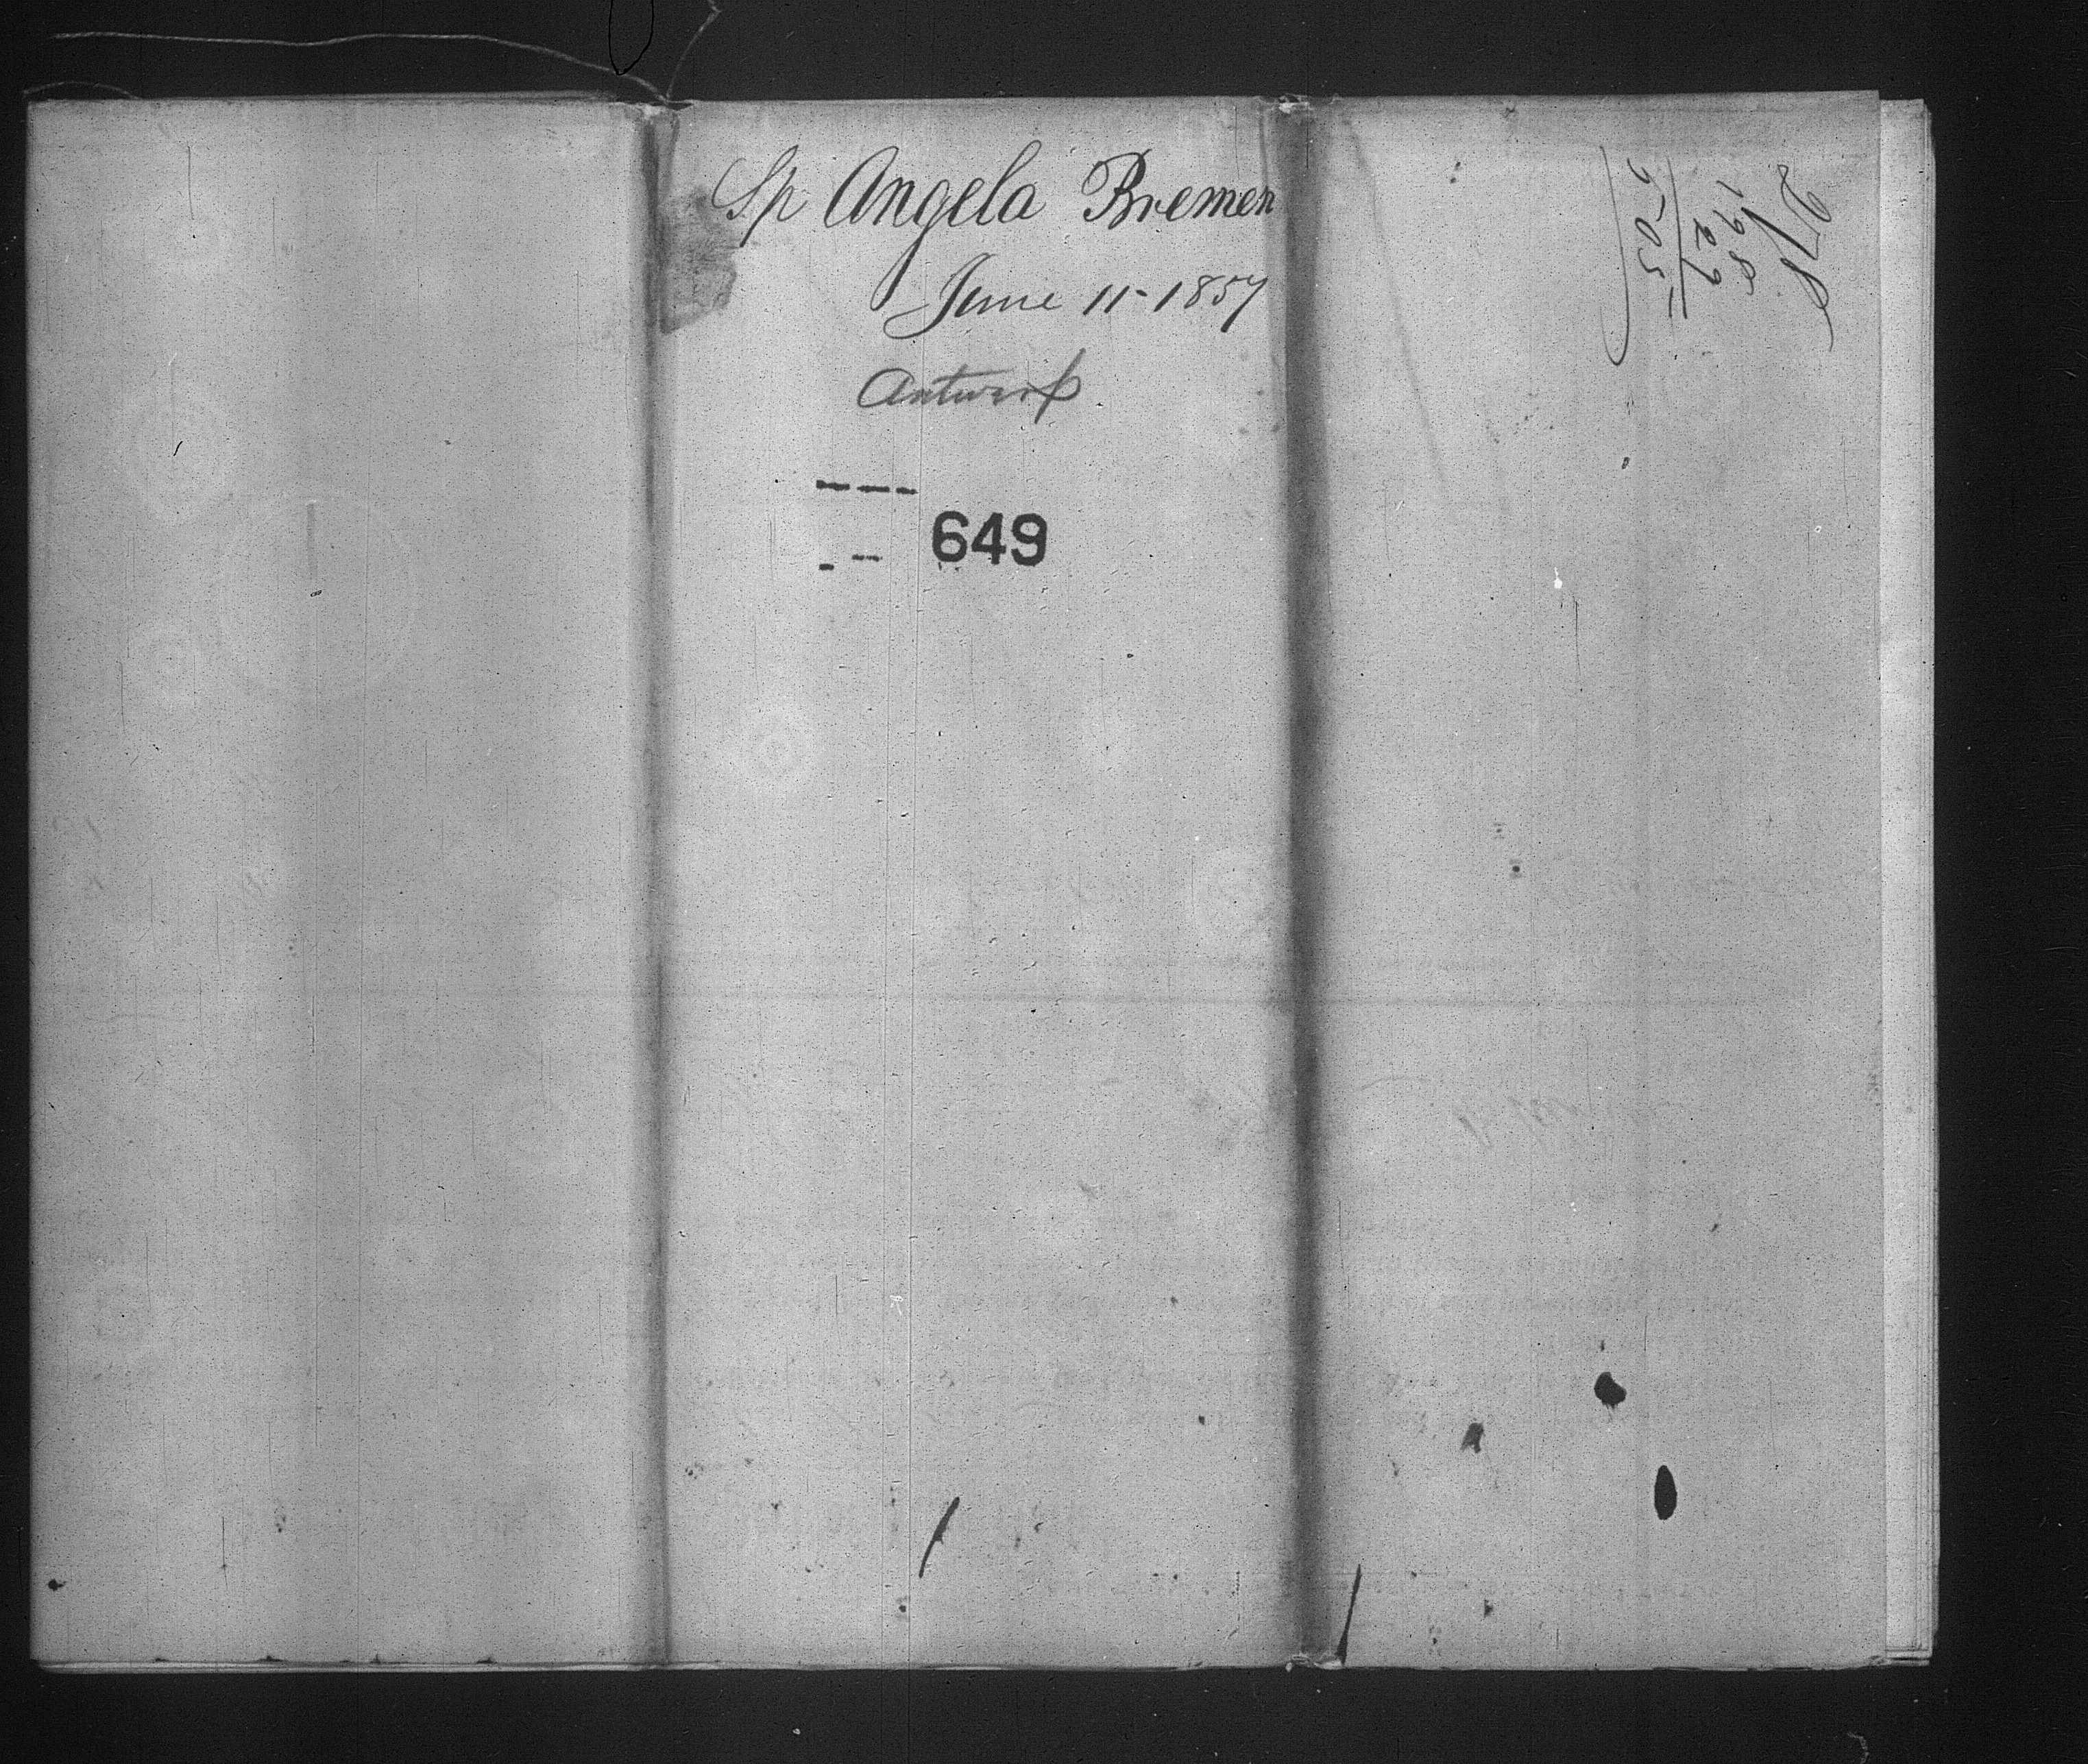 Sp Angela Bremen
June 11-1857
Antwerp
649
278
198
29
505